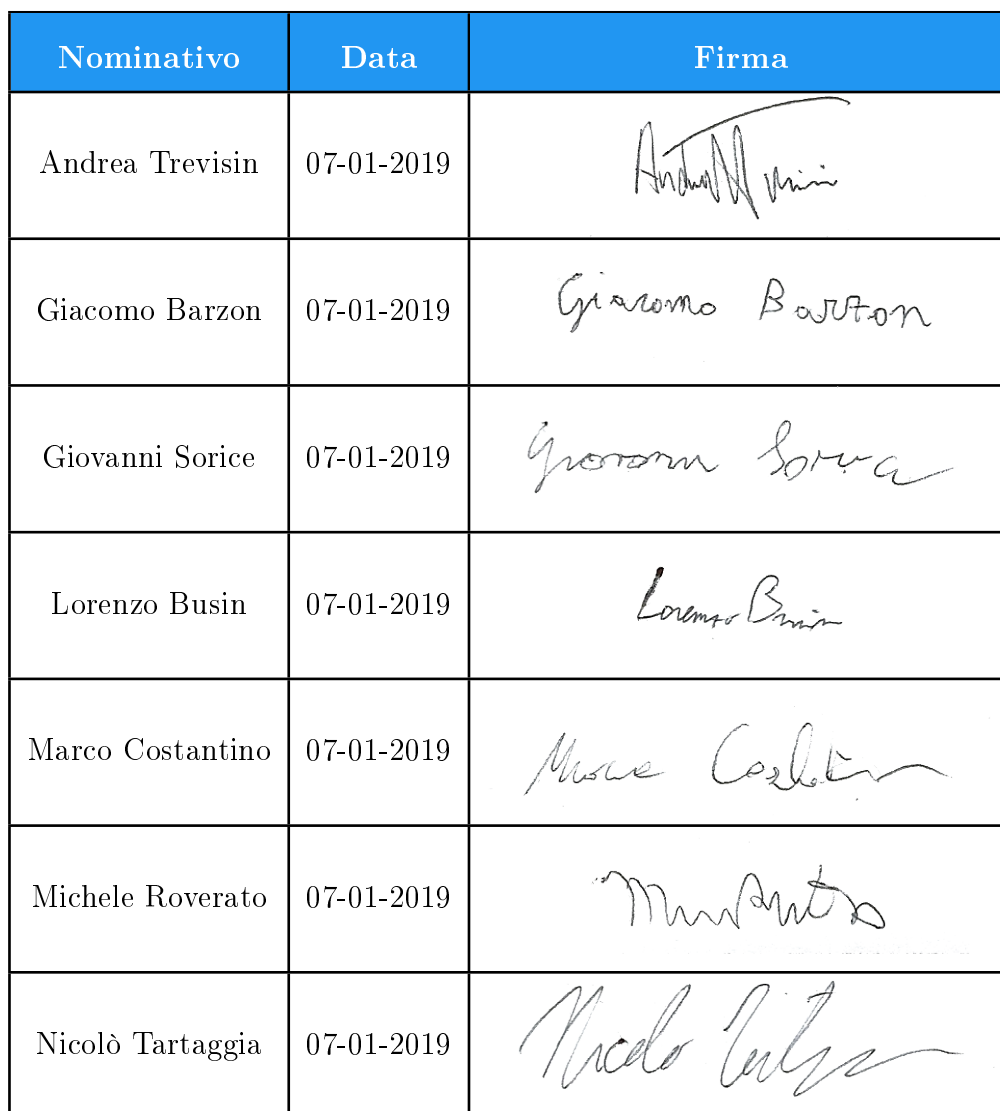 Nominativo Data Firma
Andrea Trevisin 07-01-2019
Giacomo Barzon 07-01-2019 Giacomo Barzon
Giovanni Sorice 07-01-2019 Giovanni Sorice
Lorenzo Busin 07-01-2019 Lorenzo Busin
Marco Costantino 07-01-2019
Michele Roverato 07-01-2019
Nicolò Tartaggia 07-01-2019 Nicolò